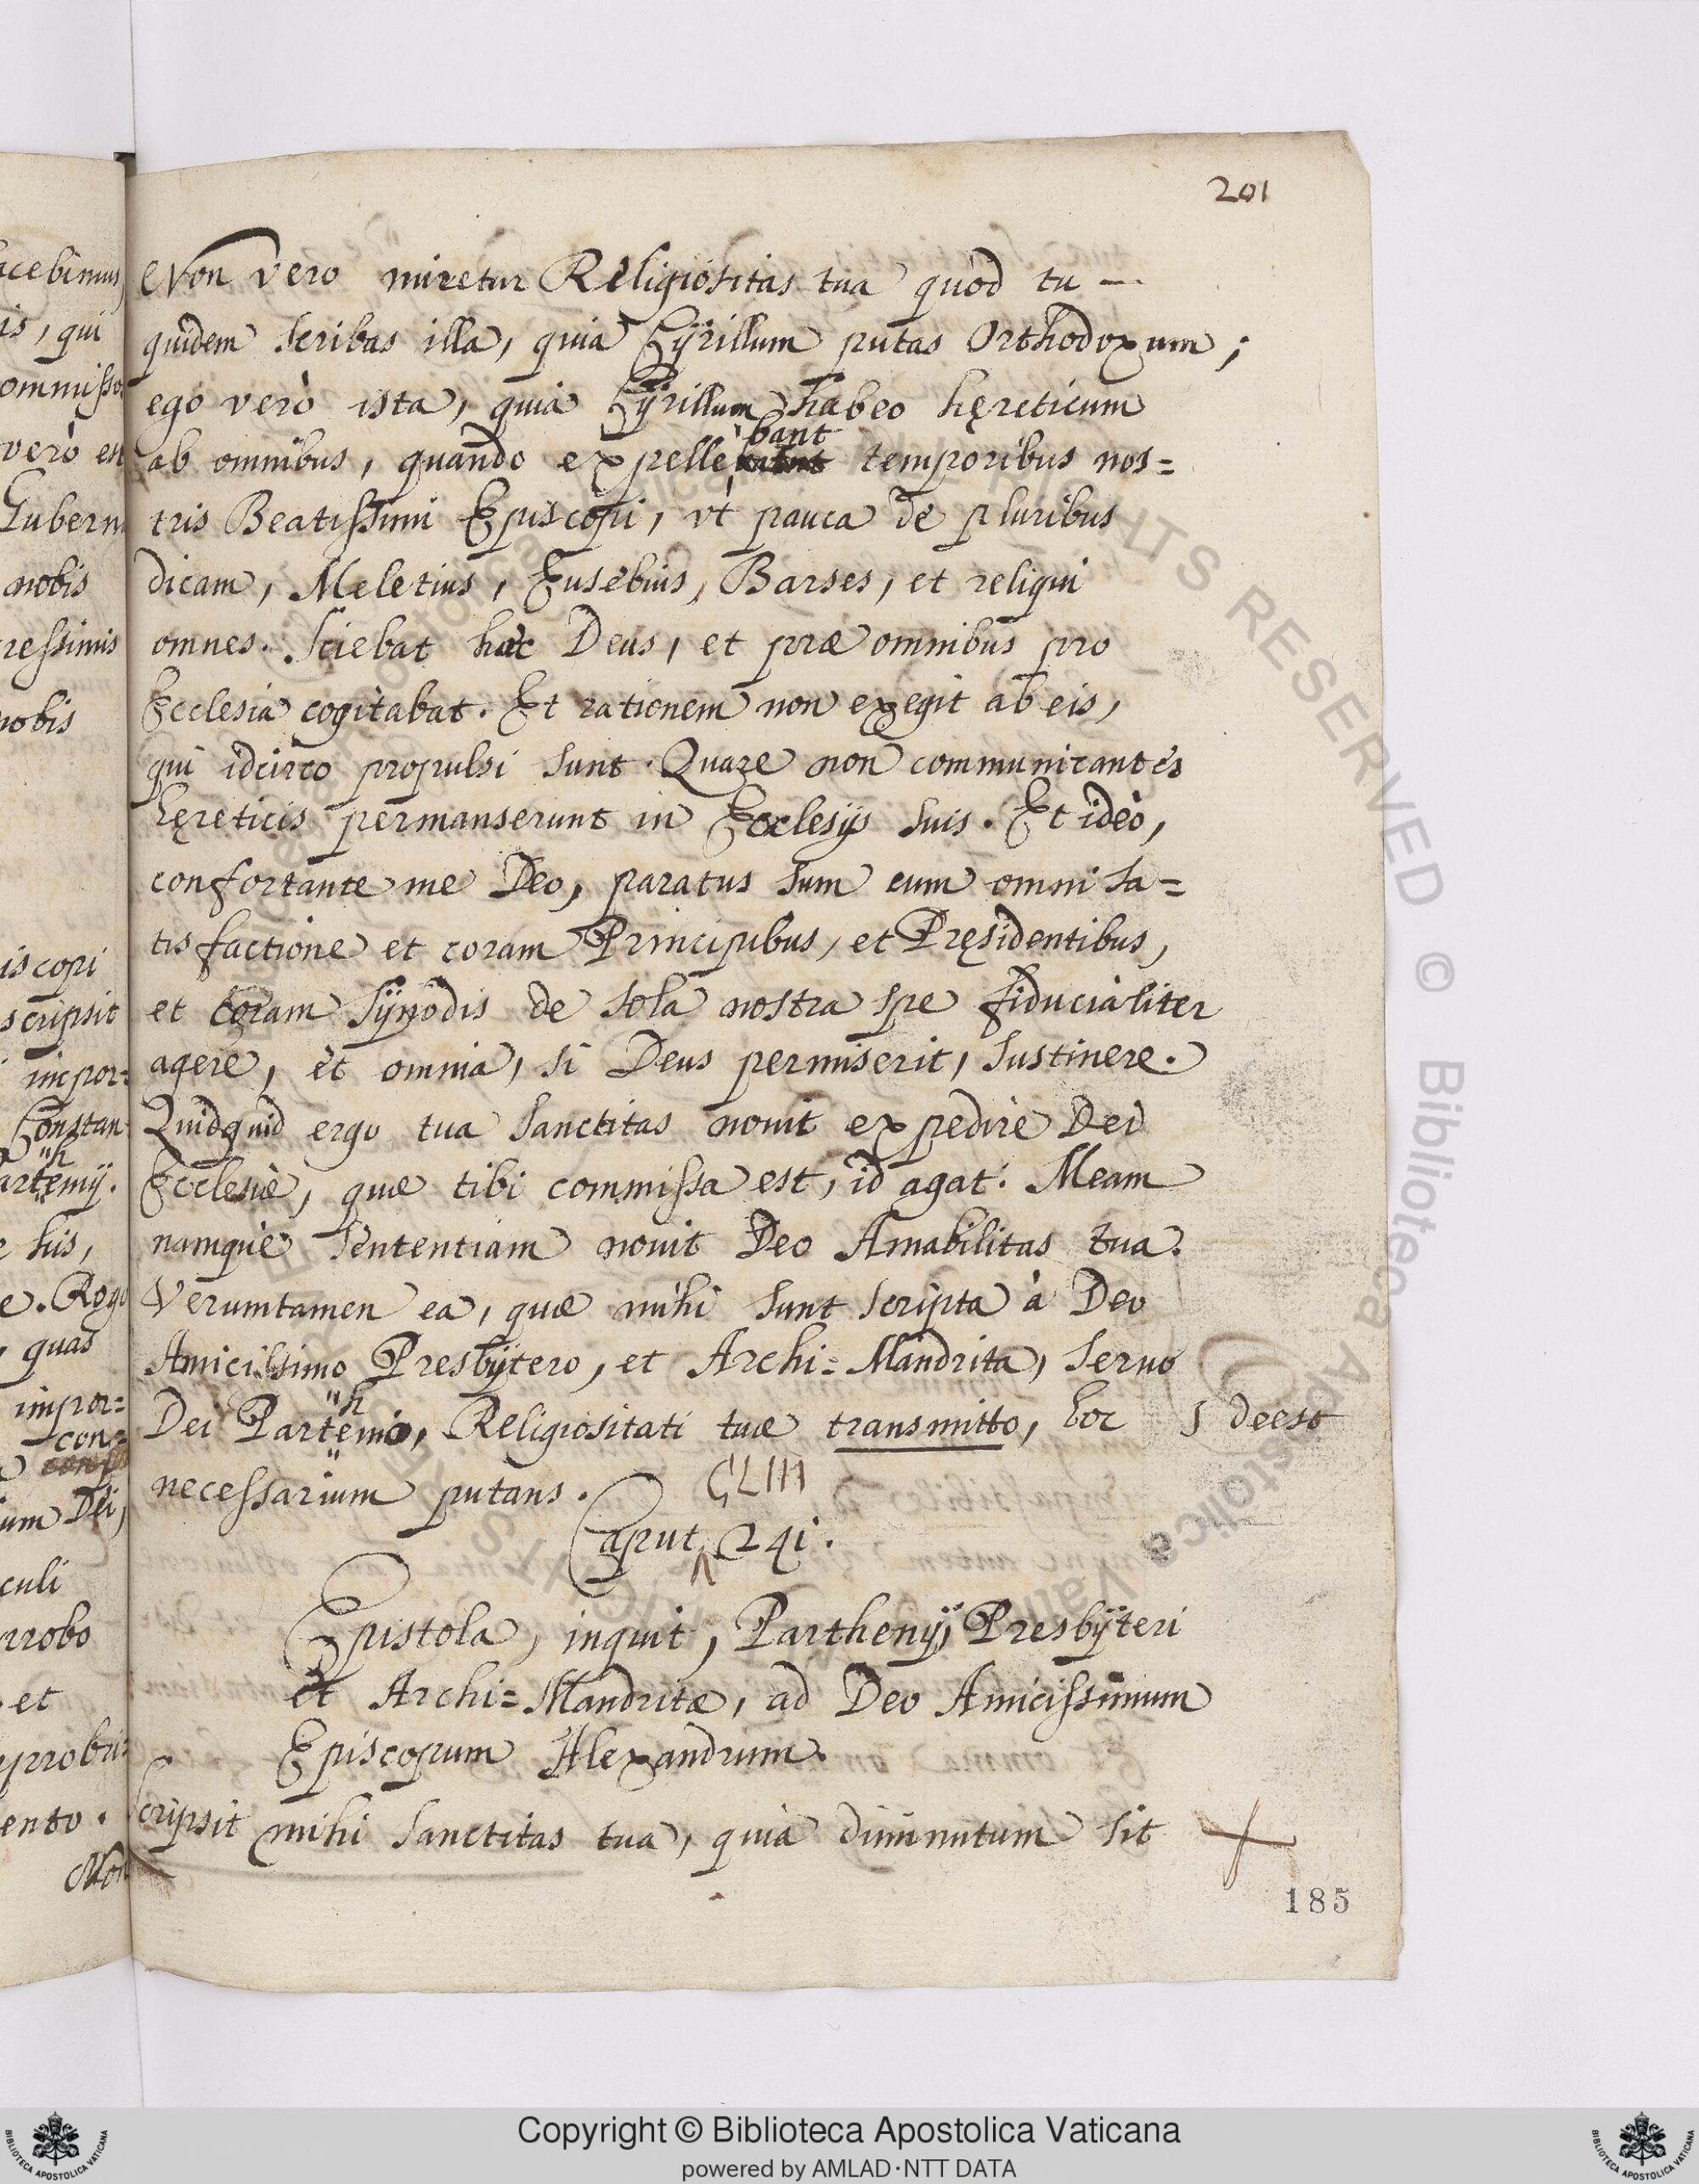 201
Non vero miretur Religiositas tua quod tu —
quidem scribas illa, quia Cÿrillum putas Orthodoxum;
ego verò ista, quia Cÿrillum habeo hęreticum
bant
ab omnibus, quando expelle temporibus nos=
tris Beatissimi Episcopi, vt pauca de pluribus
dicam, Meletius, Eusebius, Barses, et reliqui
omnes. Sciebat hæc Deus, et præ omnibus pro
Ecclesia cogitabat. Et rationem non exegit ab eis,
qui idcirco propulsi sunt. Quare non communicantes
hęreticis permanserunt in Ecclesijs suis. Et ideò,
confortante me Deo, paratus sum cum omni sa=
tisfactione et coram Principibus, et Pręsidentibus,
et coram Sÿnodis de sola nostra spe fiducialiter
agere, et omnia, si Deus permiserit, sustinere.
Quidquid ergo tua Sanctitas nouit expedire Dei
Ecclesiæ, quæ tibi commissa est, id agat. Meam
namque sententiam nouit Deo Amabilitas tua.
Verumtamen ea, quæ mihi sunt scripta à Deo
Amicissimo Presbÿtero, et Archi=Mandrita, seruo
h
Dei Partemio, Religiositati tuæ transmitto, hoc
ʃ deest
necessarium putans.
CLIII
Caput ʌ 241.
Epistola, inquit, Parthenÿ, Presbÿteri
et Archi=Mandritæ, ad Deo Amicissimum
Episcopum Alexandrum.
Scripsit mihi Sanctitas tua, quia diminutum sit
185
acebimus,
is, qui
ommisso
verò en
Gubern
nobis
ressimis
nobis
iscopi
scripsit
impor=
Constan
h
artemÿ.
his,
e. Rogo
, quas
impor=
con=
um Dei,
culi
rrobo
et
pprobri=
ento.
Non
ALL RIGHTS RESERVED © Biblioteca Apostolica Vaticana
BIBLIOTECA APOSTOLICA VATICANA
Copyright © Biblioteca Apostolica Vaticana
powered by AMLAD·NTT DATA
BIBLIOTECA APOSTOLICA VATICANA